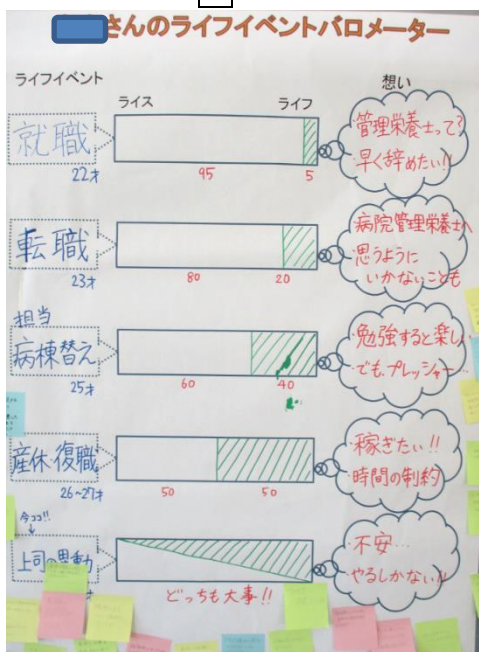 さんのライフイベントバロメーター
ライフイベント
ライス
ライフ
想い
就職
22才
95
5
管理栄養士って?
早く辞めたい!!
転職
23才
80
20
病院管理栄養士へ
思うように
いかないことも
担当
病棟替え
25才
60
40
勉強すると楽しい
でも、プレッシャー…
産休・復職
26~27才
50
50
稼ぎたい!!
時間の制約
今ココ!!
↓
上司の異動
才
どっちも大事!!
不安…
やるしかない!!